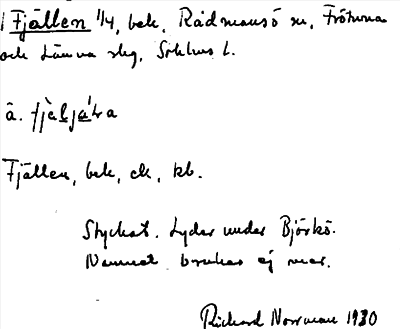 Fjällen 1/4, bek, Rådmansö sn, Frötuna
och Länna slg, Sthlms l.
a.
Fjällen, bek, ek, kb.
Styckat. Lyder under Björkö.
Namnet brukas ej mer.
Richard Norrman 1930